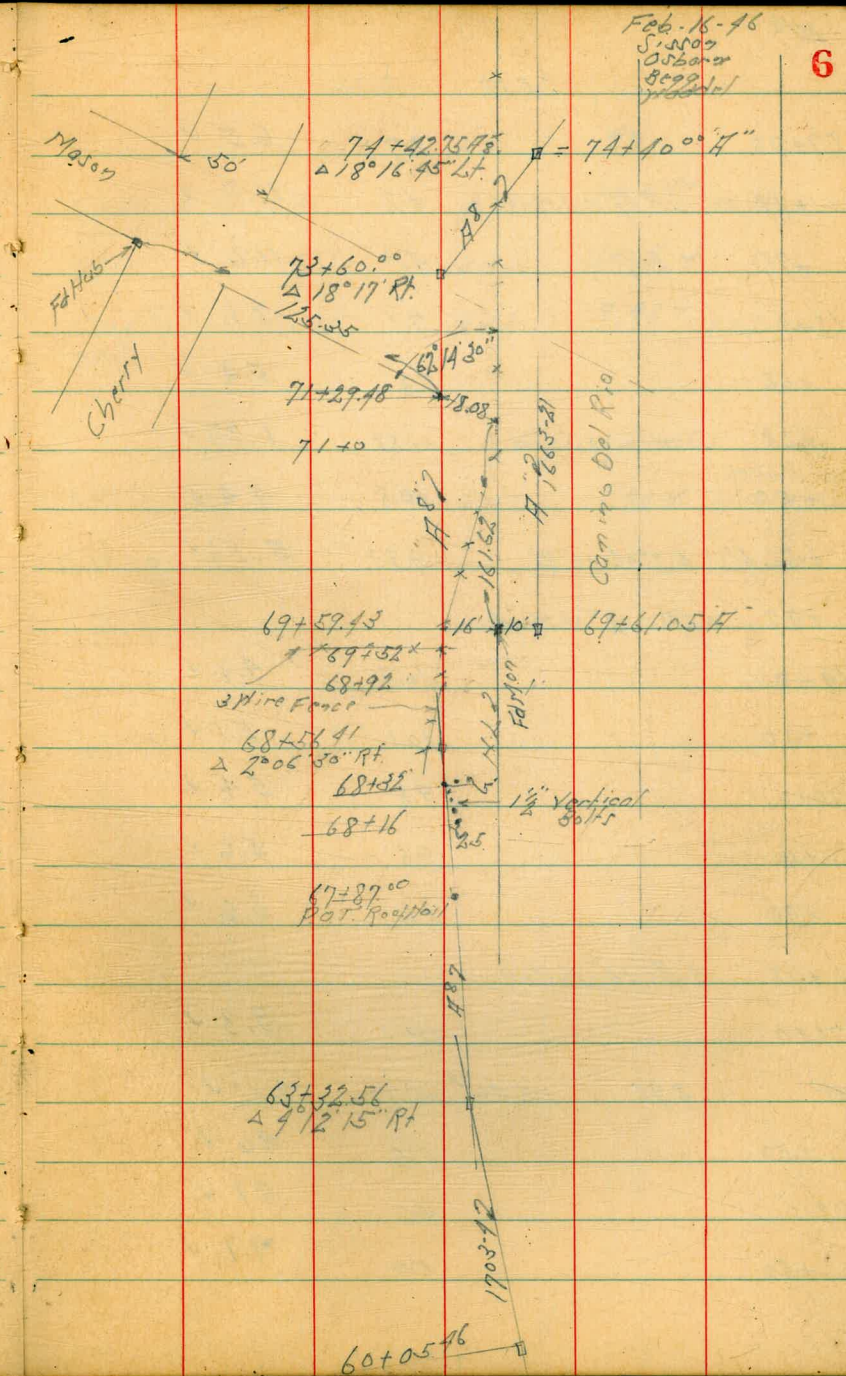 Feb-16-46
Sisson
Osborn
Begg
6
Mason
50'
74+42.75 A8
Δ 18°16'45" Lt.
= 74+40.00 "A"
A8
Fd Hub
73+60.00
Δ 18°17' Rt.
125.35
62°14'30"
Cherry
71+29.48
18.08
71+0
"A8"
161.62
"A"
1665-21
Camino Del Rio
69+59.43
16'
10'
69+61.05 "A"
69+52
68+92
3 Wire Fence
Fd Mon
68+56.41
Δ 2°06'30" Rt.
68+32
1½" Vertical
Bolts
68+16
25
67+87.00
P.O.T. Roof Nail
A8
63+32.56
Δ 4°12'15" Rt
1703-42
60+05.46